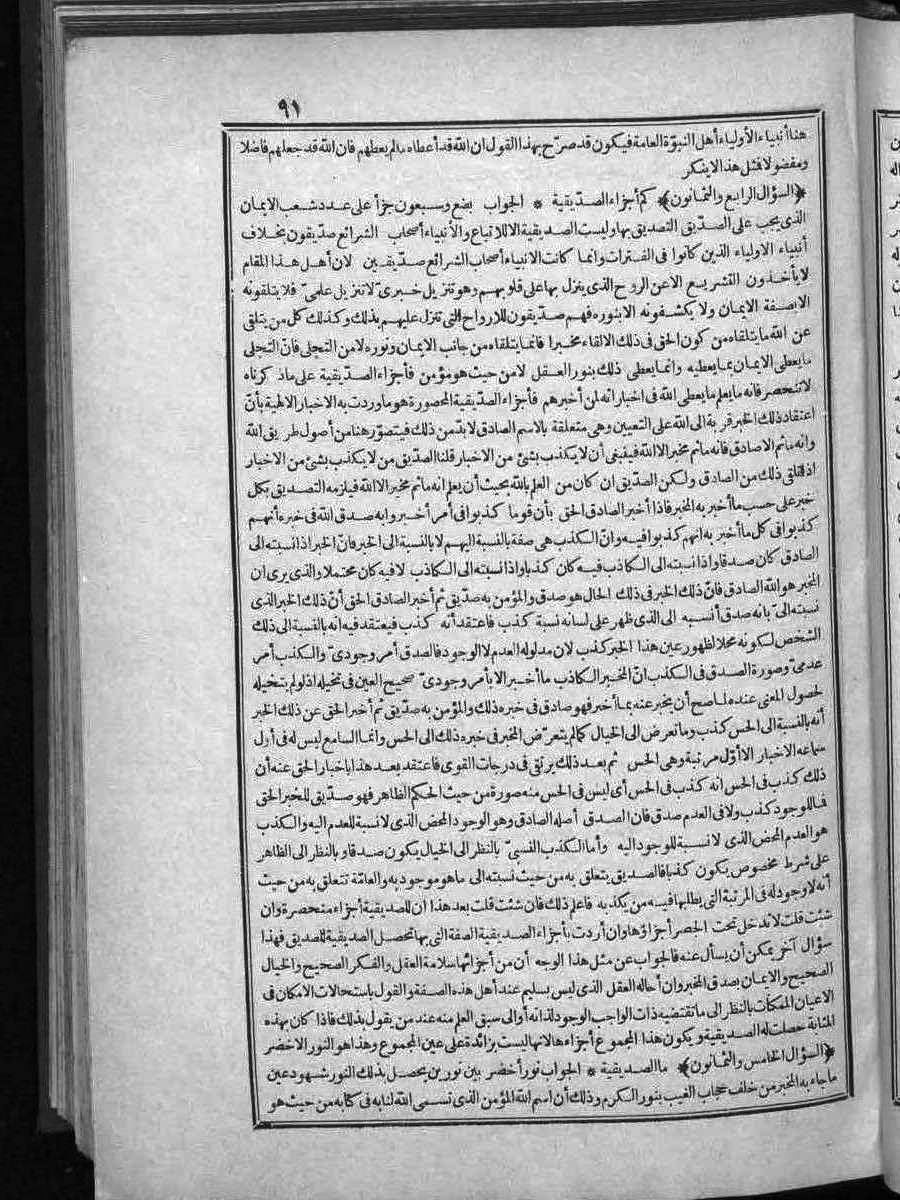 ٩١
هنا أنبياء الأولياء أهل النبوّة العامة فيكون قد صرّح بهذا القول ان الله قد أعطاه مالم يعطهم فان الله قد جعلهم فاضلا
ومفضولا فثل هذا لا ينكر
﴿السؤال الرابع والثمانون﴾ كم أجزاء الصدّيقية * الجواب بضع وسبعون جزأ على عدد شعب الايمان
الذى يجب على الصدّيق التصديق بها وليست الصديقية الا للاتباع والأنبياء أصحاب الشرائع صدّيقون بخلاف
أنبياء الاولياء الذين كانوا فى الفترات وانما كانت الانبياء أصحاب الشرائع صدّيقين لان أهل هذا المقام
لا يأخذون التشريع الا عن الروح الذى ينزل بها على قلوبهم وهو تنزيل خبرىّ لا تنزيل علمىّ فلا يتلقونه
الا بصفة الايمان ولا يكشفونه الا بنوره فهم صدّيقون للارواح التى تنزل عليهم بذلك وكذلك كل من يتلقى
عن الله ما يتلقاه من كون الحق فى ذلك الالقاء مخبرا فانما يتلقاه من جانب الايمان ونوره لا من التجلى فانّ التجلى
ما يعطى الايمان بما يعطيه وانما يعطى ذلك بنور العقل لا من حيث هو مؤمن فأجزاء الصدّيقية على ماذكرناه
لا تنحصر فانه ما يعلم ما يعطى الله فى اخباراته لمن أخبرهم فأجزاء الصدّيقية المحصورة هو ما وردت به الاخبار الالهية بأنّ
اعتقاد ذلك الخبر قربة الى الله على التعيين وهى متعلقة بالاسم الصادق لا بدّ من ذلك فيتصوّر هنا من أصول طريق الله
وانه ماثم الاصادق فانه ماثم مخبر الا الله فينبغى أن لا يكذب بشئ من الاخبار قلنا الصدّيق من لا يكذب بشئ من الاخبار
اذ تلقى ذلك من الصادق ولكن الصدّيق ان كان من العلم بالله بحيث أن يعلم انه ماثم مخبر الا الله فيلزمه التصديق بكل
خبر على حسب ما أخبر به المخبر فاذا أخبر الصادق الحق بأن قوما كذبوا فى أمر أخبروا به صدق الله فى خبره أنهم
كذبوا فى كل ما أخبر به انهم كذبوا فيه وانّ الكذب هى صفة بالنسبة اليهم لا بالنسبة الى الخبر فانّ الخبر اذا نسبته الى
الصادق كان صدقا واذا نسبته الى الكاذب فيه كان كذبا واذا نسبته الى الكاذب لافيه كان محتملا والذى يرى ان
المخبر هو الله الصادق فانّ ذلك الخبر فى ذلك الحال هو صدق والمؤمن به صدّيق ثم أخبر الصادق الحق أنّ ذلك الخبر الذى
نسبته الىّ بانه صدق أنسبه الى الذى ظهر على لسانه نسبة كذب فاعتقد أنه كذب فيعتقد فيه انه بالنسبة الى ذلك
الشخص لكونه محلا لظهور عين هذا الخبر كذب لان مدلوله العدم لا الوجود فالصدق أمر وجودىّ والكذب أمر
عدمىّ وصورة الصدق فى الكذب انّ المخبر الكاذب ما أخبر الا بأمر وجودىّ صحيح العين فى تخيله اذ لو لم يتخيله
لحصول المعنى عنده لما صح أن يخبر عنه بما أخبر فهو صادق فى خبره ذلك والمؤمن به صدّيق ثم أخبر الحق عن ذلك الخبر
أنه بالنسبة الى الحس كذب وما تعرض الى الخيال كما لم يتعرّض المخبر فى خبره ذلك الى الحس وانما السامع ليس له فى أول
سماعه الاخبار الا أول مرتبة وهى الحس ثم بعد ذلك يرتقى فى درجات القوى فاعتقد بعد هذا باخبار الحق عنه أن
ذلك كذب فى الحس انه كذب فى الحس أى ليس فى الحس منه صورة من حيث الحكم الظاهر فهو صدّيق للخبر الحق
فما للوجود كذب ولا فى العدم صدق فان الصدق أصله الصادق وهو الوجود المحض الذى لا نسبة للعدم اليه والكذب
هو العدم المحض الذى لا نسبة للوجود اليه وأما الكذب النسبىّ بالنظر الى الخيال يكون صدقا وبالنظر الى الظاهر
على شرط مخصوص يكون كذبا فالصديق يتعلق به من حيث نسبته الى ماهو موجود به والعامّة تتعلق به من حيث
أنه لا وجود له فى المرتبة التى يطلبها فيه من يكذبه فاعلم ذلك فان شئت قلت بعد هذا ان للصديقية أجزاء منحصرة وان
شئت قلت لا تدخل تحت الحصر أجزاؤها وان أردت بأجزاء الصديقية الصفة التى بها تحصل الصديقية للصديق فهذا
سؤال آخر يمكن أن يسأل عنه فالجواب عن مثل هذا الوجه أن من أجزائها سلامة العقل والفكر الصحيح والخيال
الصحيح والايمان بصدق المخبر وان أحاله العقل الذى ليس بسليم عند أهل هذه الصفة والقول باستحالات الامكان فى
الاعيان الممكنات بالنظر الى ما تقتضيه ذات الواجب الوجود لذاته أو الى سبق العلم منه عند من يقول بذلك فاذا كان بهذه
المثابة حصلت له الصديقية ويكون هذا المجموع أجزاءها لانها ليست بزائدة على عين المجموع وهذا هو النور الاخضر
﴿السؤال الخامس والثمانون﴾ ما الصديقية * الجواب نور أخضر بين نورين يحصل بذلك النور شهود عين
ما جاء به المخبر من خلف حجاب الغيب بنور الكرم وذلك أن اسم الله المؤمن الذى تسمى الله لنا به فى كتابه من حيث هو